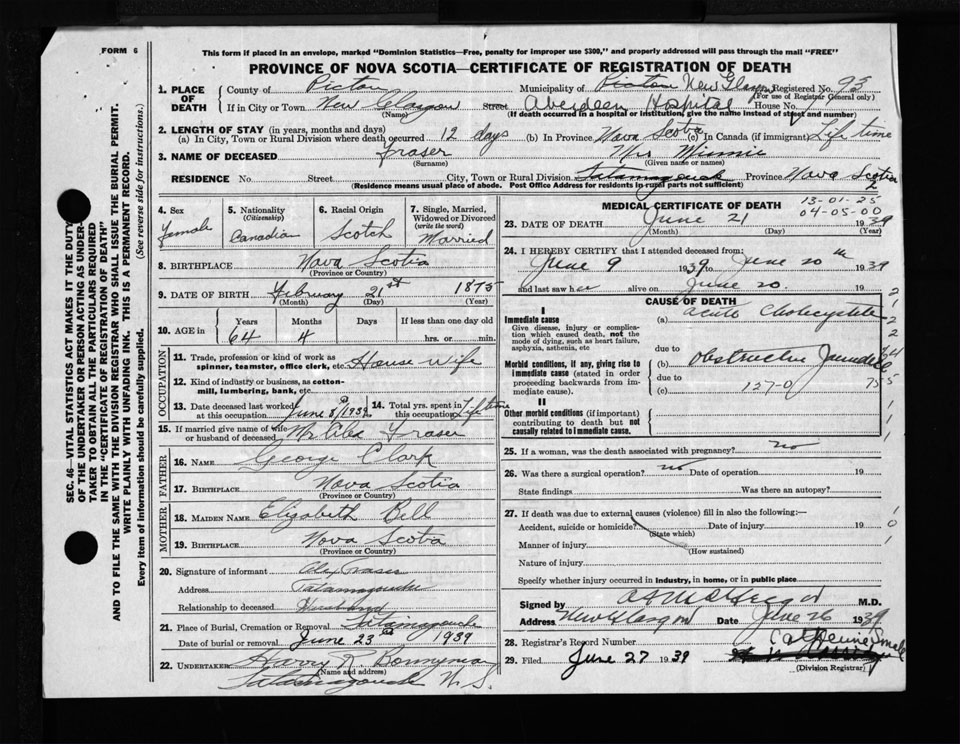 FORM 6
This form if placed in an envelope, marked "Dominion Statistics—Free, penalty for improper use $300," and properly addressed will pass through the mail "FREE"
PROVINCE OF NOVA SCOTIA—CERTIFICATE OF REGISTRATION OF DEATH
SEC. 46—VITAL STATISTICS ACT MAKES IT THE DUTY
OF THE UNDERTAKER OR PERSON ACTING AS UNDER-
TAKER TO OBTAIN ALL THE PARTICULARS REQUIRED
IN THE "CERTIFICATE OF REGISTRATION OF DEATH"
AND TO FILE THE SAME WITH THE DIVISION REGISTRAR WHO SHALL ISSUE THE BURIAL PERMIT.
WRITE PLAINLY WITH UNFADING INK. THIS IS A PERMANENT RECORD.
Every item of information should be carefully supplied. (See reverse side for instructions.)
1. PLACE OF DEATH County of Pictou Municipality of Pictou New Glasgow Registered No. 93
(For use of Registrar General only)
If in City or Town New Glasgow Street Aberdeen Hospital House No.
(Name) (If death occurred in a hospital or institution, give the name instead of street and number)
2. LENGTH OF STAY (in years, months and days)
(a) In City, Town or Rural Division where death occurred 12 days (b) In Province Nova Scotia (c) In Canada (if immigrant) Life time
3. NAME OF DECEASED Fraser Mrs Minnie
(Surname) (Given name or names)
RESIDENCE No. Street City, Town or Rural Division Tatamagouch Province Nova Scotia
(Residence means usual place of abode. Post Office Address for residents in rural parts not sufficient)
2
4. Sex Female
5. Nationality (Citizenship) Canadian
6. Racial Origin Scotch
7. Single, Married, Widowed or Divorced (write the word) Married
8. BIRTHPLACE Nova Scotia
(Province or Country)
9. DATE OF BIRTH February 21st 1875
(Month) (Day) (Year)
10. AGE in Years Months Days If less than one day old
64 4 hrs. or min.
OCCUPATION
11. Trade, profession or kind of work as spinner, teamster, office clerk, etc. House Wife
12. Kind of industry or business, as cotton-mill, lumbering, bank, etc.
13. Date deceased last worked at this occupation June 8/1939
14. Total yrs. spent in this occupation Lifetime
15. If married give name of wife or husband of deceased Mr Alex Fraser
FATHER
16. NAME George Clark
17. BIRTHPLACE Nova Scotia
(Province or Country)
MOTHER
18. MAIDEN NAME Elizabeth Bell
19. BIRTHPLACE Nova Scotia
(Province or Country)
20. Signature of informant Alex Fraser
Address Tatamagouche
Relationship to deceased Husband
21. Place of Burial, Cremation or Removal Tatamagouche
Date of burial or removal June 23rd 1939
22. UNDERTAKER Harry R. Bonnyman
(Name and address)
Tatamagouch N.S.
MEDICAL CERTIFICATE OF DEATH
13-01-25
04-05-00
23. DATE OF DEATH June 21 1939
(Month) (Day) (Year)
24. I HEREBY CERTIFY that I attended deceased from:
June 9 1939 to June 20th 1939
and last saw her alive on June 20. 19
CAUSE OF DEATH
I
Immediate cause (a) Acute Cholecystitis
Give disease, injury or complication which caused death, not the mode of dying, such as heart failure, asphyxia, asthenia, etc
due to
Morbid conditions, if any, giving rise to immediate cause (stated in order proceeding backwards from immediate cause).
(b) Obstructive Jaundice
due to
(c) 127-0
II
Other morbid conditions (if important) contributing to death but not causally related to immediate cause.
25. If a woman, was the death associated with pregnancy? no
26. Was there a surgical operation? no Date of operation 19
State findings Was there an autopsy?
27. If death was due to external causes (violence) fill in also the following:—
Accident, suicide or homicide? Date of injury 19
(State which)
Manner of injury
(How sustained)
Nature of injury
Specify whether injury occurred in industry, in home, or in public place
Signed by M.D.
Address New Glasgow Date June 26 1939
28. Registrar's Record Number
29. Filed June 27 1939 Catherine Small
(Division Registrar)